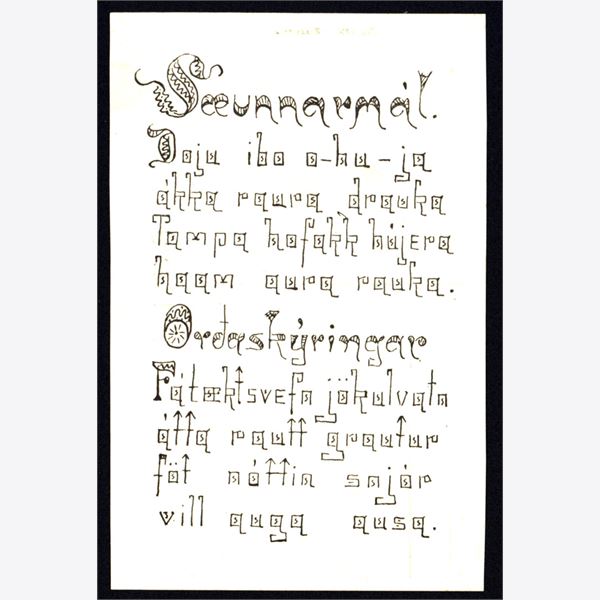 Sæunnarmál.
Doju ibo o-hu-ja
ákka raura drauka
Tampa hofakk hújera
haam aura rauka.
Orðaskýringar
Fátæktsvefn jökulvatn
átta rautt grautur
föt nóttin snjór
vill auga ausa.